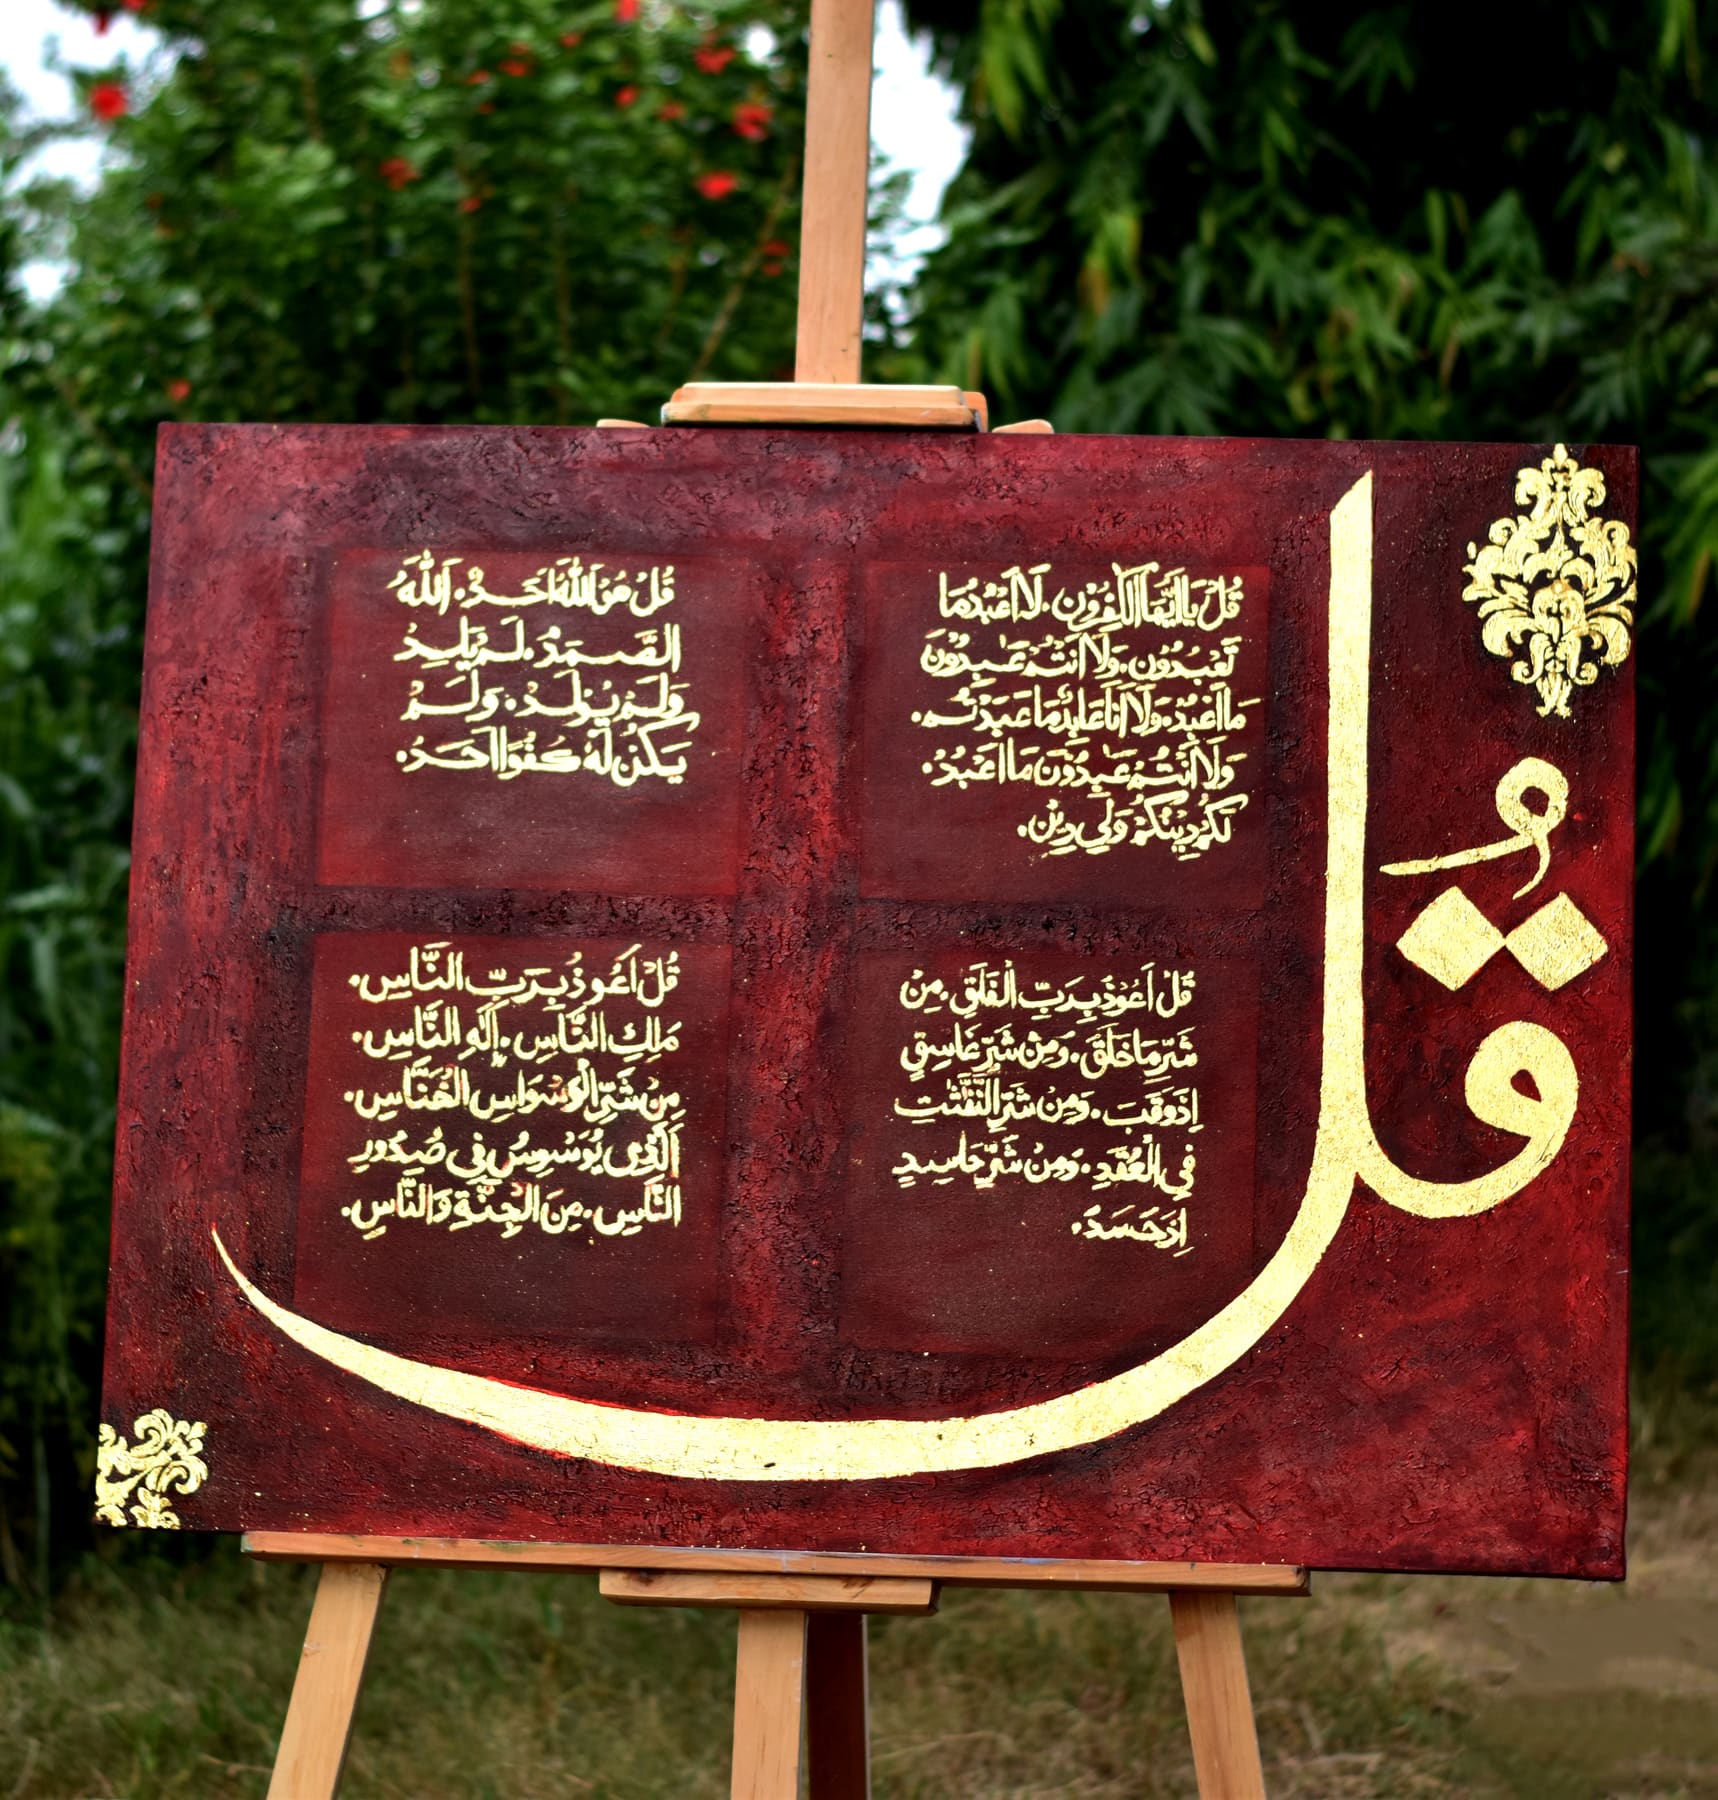 قُلْ
قُلْ يَا اَيُّهَا الْكٰفِرُوْنَ. لَا اَعْبُدُ مَا
تَعْبُدُوْنَ. وَلَا اَنْتُمْ عٰبِدُوْنَ
مَا اَعْبُدُ. وَلَا اَنَا عَابِدٌ مَا عَبَدْتُّمْ.
وَلَا اَنْتُمْ عٰبِدُوْنَ مَا اَعْبُدُ.
لَكُمْ دِيْنُكُمْ وَلِيَ دِيْنِ.
قُلْ هُوَ اللّٰهُ اَحَدٌ. اَللّٰهُ
الصَّمَدُ. لَمْ يَلِدْ
وَلَمْ يُوْلَدْ. وَلَمْ
يَكُنْ لَهٗ كُفُوًا اَحَدٌ.
قُلْ اَعُوْذُ بِرَبِّ الْفَلَقِ. مِنْ
شَرِّ مَا خَلَقَ. وَمِنْ شَرِّ غَاسِقٍ
اِذَ وَقَبَ. وَمِنْ شَرِّ النَّفّٰثٰتِ
فِي الْعُقَدِ. وَمِنْ شَرِّ حَاسِدٍ
اِذَ حَسَدَ.
قُلْ اَعُوْذُ بِرَبِّ النَّاسِ.
مَلِكِ النَّاسِ. اِلٰهِ النَّاسِ.
مِنْ شَرِّ الْوَسْوَاسِ الْخَنَّاسِ.
اَلَّذِى يُوَسْوِسُ فِى صُدُورِ
النَّاسِ. مِنَ الْجِنَّةِ وَالنَّاسِ.